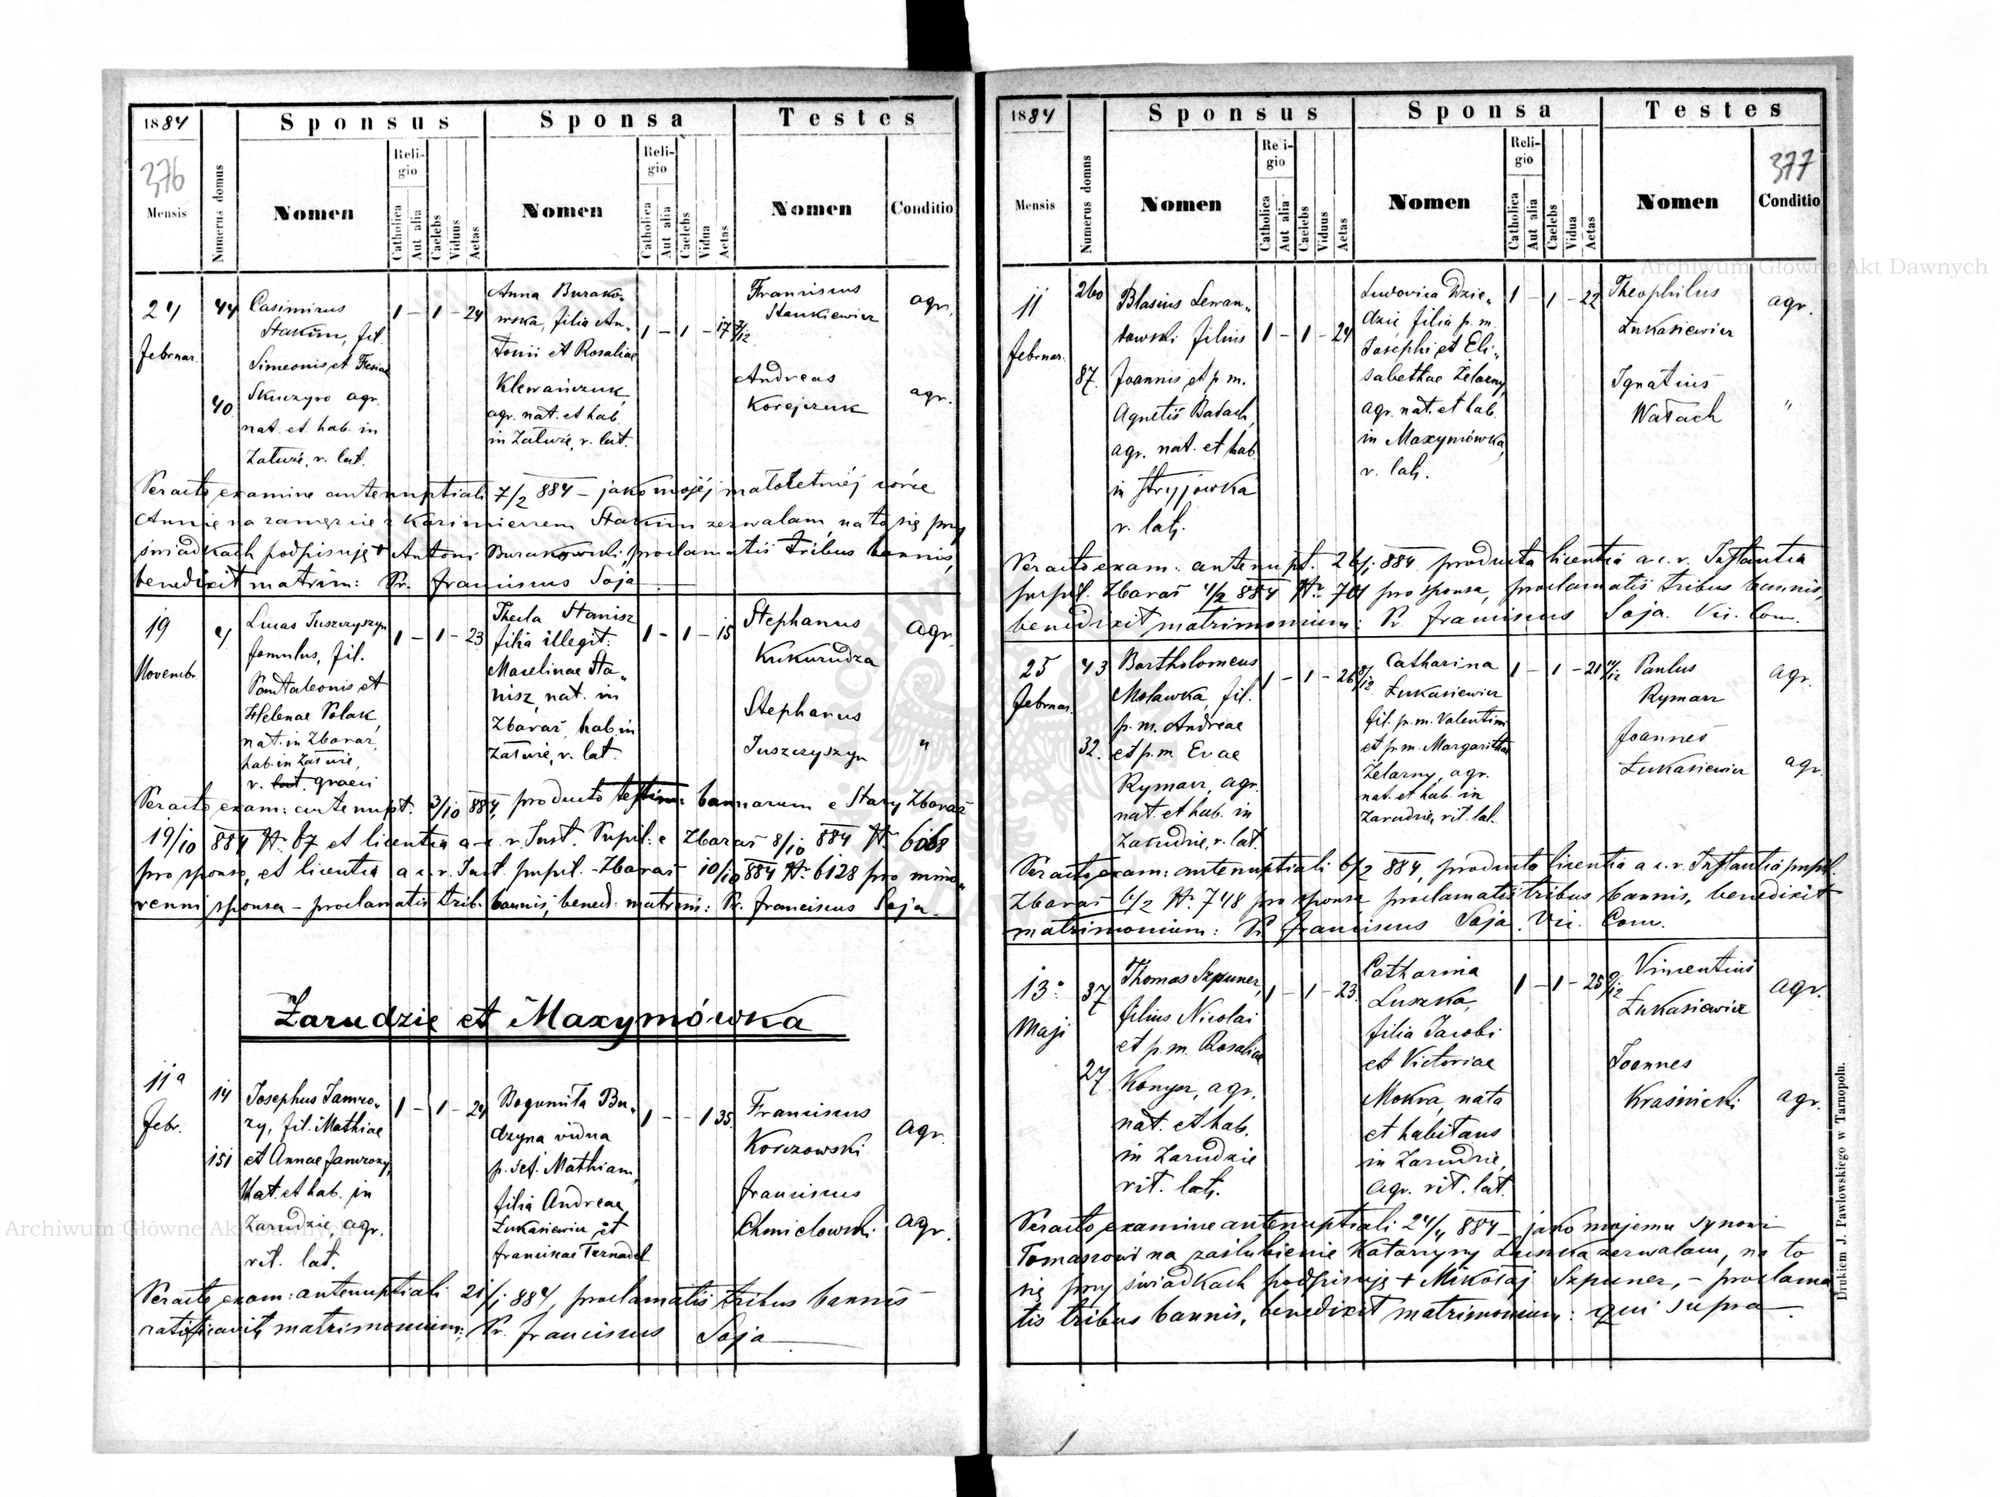 1884
Sponsus
Sponsa
Testes
376
Mensis
Numerus domus
Nomen
Religio
Catholica
Aut alia
Caelebs
Viduus
Aetas
Nomen
Religio
Catholica
Aut alia
Caelebs
Vidua
Aetas
Nomen
Conditio
24
Februar.
44
40
Casimirus
Stakun, fil.
Simeonis et
agr.
nat. et hab. in
Załuże, r. lat.
1 - 1 - 24
Anna Burako-
wska, filia An-
tonii et Rosaliae
Klewańczuk,
agr. nat. et hab.
in Załuże, r. lat.
1 - 1 - 17 7/12
Franciscus
Stankiewicz
agr.
Andreas
Korejczuk
agr.
Peracto examine antenuptiali 7/2 884 – jako mojéj małoletniéj córce
Annie na zamęzcie z Kazimierzem Stakun zezwalam, na to się przy
świadkach podpisuję + Antoni Burakowski, proclamatis tribus bannis,
benedixit matrim: Pr. Franciscus Soja
19
Novembr.
4
Lucas Juszczyszyn
famulus, fil.
Pantaleonis et
Helenae Polak,
nat. in Zbaraz,
hab. in Załuże,
r. lat. graeci
1 - 1 - 23
Thecla Stanisz
filia illegit.
Marelinae Sta-
nisz, nat. in
Zbaraż, hab. in
Załuże, r. lat.
1 - 1 - 15
Stephanus
Kukurudza
Agr.
Stephanus
Juszczyszyn
"
Peracto exam: antenupt. 3/10 884, producto testim: bannorum e Stary Zbaraż
19/10 884 N. 67 et licentia a c. r. Inst. Pupil. e Zbaraż 8/10 884 N. 6068
pro sponso, et licentia a c. r. Inst. pupil. Zbaraż 10/10 884 N. 6128 pro mino-
renni sponsa – proclamatis trib. bannis, bened. matrim: Pr. Franciscus Soja.
Zarudzie et Maxymówka
11a
Febr.
14
151
Josephus Jamro-
zy, fil. Mathiae
et Annae Jamrozy,
Nat. et hab. in
Zarudzie, agr.
rit. lat.
1 - 1 - 24
Bogumiła Bu-
dzyna vidua
p. def. Mathiam,
filia Andreae
Łukasiewicz et
Franciscae Ternadel
1 - - 1 35
Franciscus
Korczowski
Agr.
Franciscus
Chmielowski
Agr.
Peracto exam: antenuptiali 21/1 884, proclamatis tribus bannis
ratificavit matrimonium: Pr. Franciscus Soja
1884
Sponsus
Sponsa
Testes
377
Mensis
Numerus domus
Nomen
Re igio
Catholica
Aut alia
Caelebs
Viduus
Aetas
Nomen
Religio
Catholica
Aut alia
Caelebs
Vidua
Aetas
Nomen
Conditio
11
Februar.
260
87.
Blasius Lewan-
dowski filius
Joannis et p. m.
Agnetis Badach,
agr. nat. et hab.
in Stryjówka
r. lat.
1 - 1 - 24
Ludovica Dzie-
dzic filia p. m.
Josephi et Eli-
sabethae Żelazny,
agr. nat. et hab.
in Maxymówka,
r. lat.
1 - 1 - 22
Theophilus
Łukasiewicz
agr.
Ignatius
Watach
"
Peracto exam: antenupt. 26/1 884 producta licentia a c. r. Instantia
pupil. Zbaraż 4/2 884 N. 701 pro sponsa, proclamatis tribus bannis,
benedixit matrimonium: Pr. Franciscus Soja. Vic. Coov.
25
Februar.
43
32.
Bartholomeus
Moławka, fil.
p. m. Andreae
et p. m. Evae
Rymarz, agr.
nat. et hab. in
Zarudzie, r. lat.
1 - 1 - 26 8/12
Catharina
Łukasiewicz
fil. p. m. Valentini
et p. m. Margarithae
Żelazny, agr.
nat. et hab. in
Zarudzie, rit. lat.
1 - 1 - 21 4/12
Paulus
Rymarz
agr.
Joannes
Łukasiewicz
agr.
Peracto exam: antenuptiali 6/2 884, producto licentia a c. r. Instantia pupil.
Zbaraż 6/2 N. 748 pro sponsa proclamatis tribus bannis, benedixit
matrimonium: Pr. Franciscus Soja. Vic. Coov.
13a
Maji
37
27.
Thomas Szpuner,
filius Nicolai
et p. m. Rosaliae
Konysz, agr.
nat. et hab.
in Zarudzie
rit. lat.
1 - 1 - 23.
Catharina
Luszka,
filia Jacobi
et Victoriae
Mokra, nata
et habitans
in Zarudzie,
agr. rit. lat.
1 - 1 - 25 9/12
Vincentius
Łukasiewicz
agr.
Joannes
Krasicki
agr.
Peracto examine antenuptiali 24/4 884 – jako mojemu synowi
Tomaszowi na zaślubienie Katarzyny Luszka zezwalam, na to
się przy świadkach podpisuję + Mikołaj Szpuner, – proclama
tis tribus bannis, benedixit matrimonium: qui supra
Drukiem J. Pawłowskiego w Tarnopolu.
Archiwum Główne Akt Dawnych
Archiwum Główne Akt Dawnych